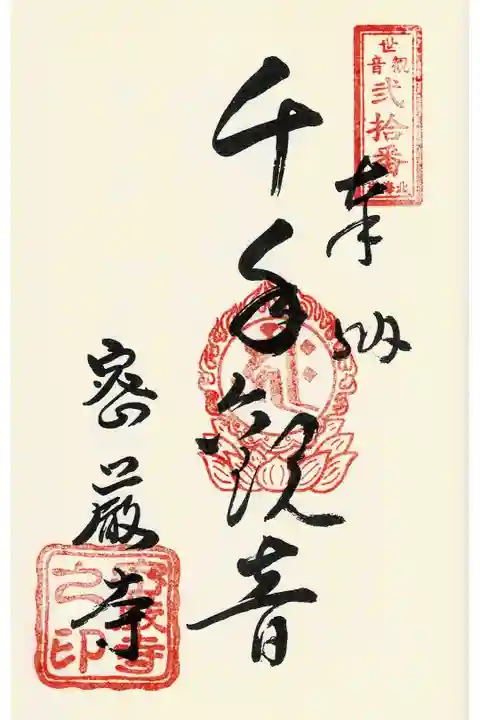 奉納
千手観音
密厳寺
世観音
弐拾番
北海
密厳寺之印